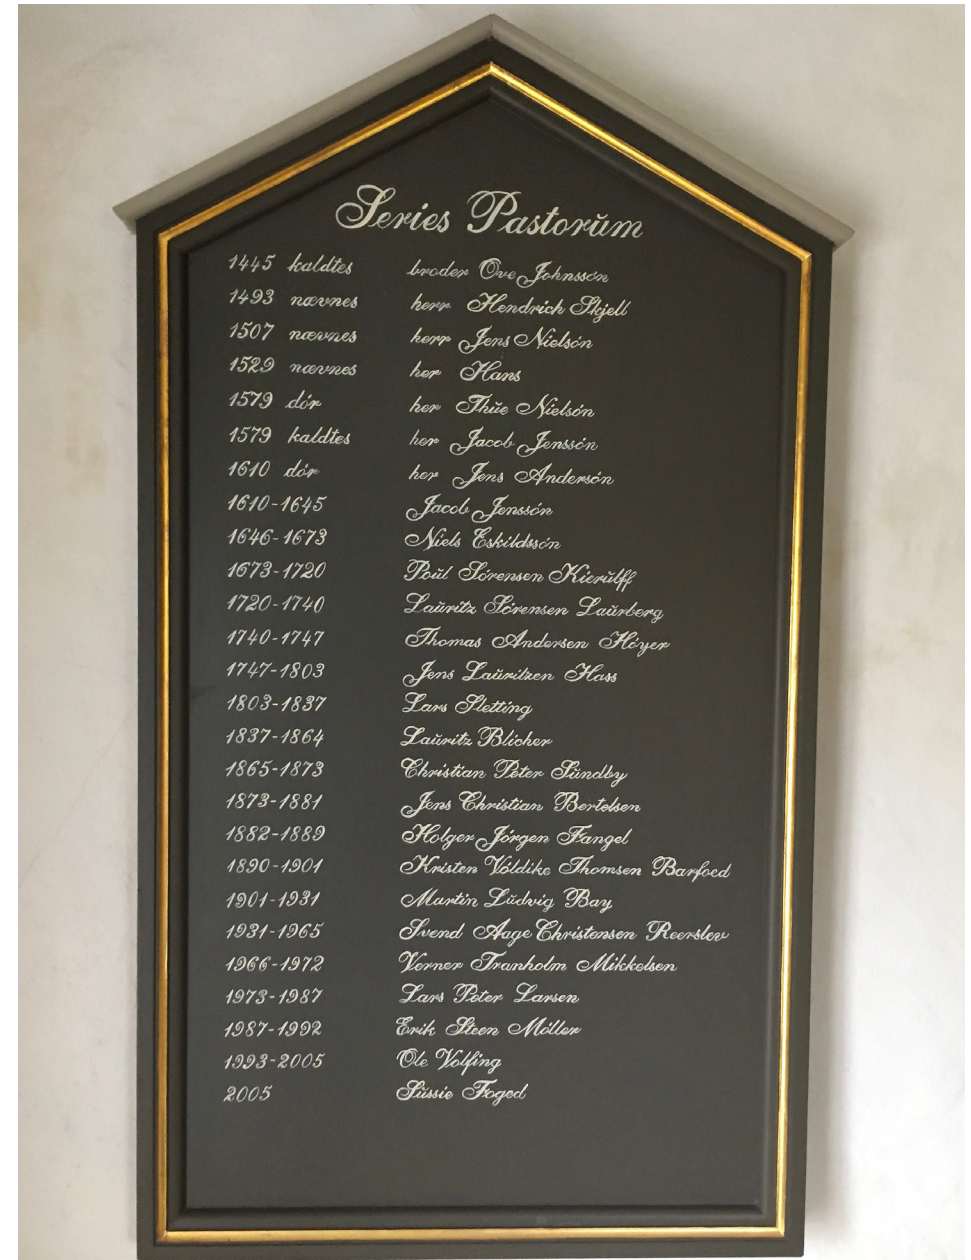 Series Pastorŭm
1445 kaldtes broder Ove Johnssón
1493 nævnes herr Hendrich Skjell
1507 nævnes herr Jens Nielsón
1529 nævnes her Hans
1579 dór her Thŭe Nielsón
1579 kaldtes her Jacob Jenssón
1610 dór her Jens Andersón
1610-1645 Jacob Jenssón
1646-1673 Niels Eskildssón
1673-1720 Poŭl Sórensen Kierŭlff
1720-1740 Laŭritz Sórensen Laŭrberg
1740-1747 Thomas Andersen Hóyer
1747-1803 Jens Laŭritzen Hass
1803-1837 Lars Sletting
1837-1864 Laŭritz Blicher
1865-1873 Christian Peter Sŭndby
1873-1881 Jens Christian Bertelsen
1882-1889 Holger Jórgen Fangel
1890-1901 Kristen Vóldike Thomsen Barfoed
1901-1931 Martin Lŭdvig Bay
1931-1965 Svend Aage Christensen Reerslev
1966-1972 Verner Tranholm Mikkelsen
1973-1987 Lars Peter Larsen
1987-1992 Erik Steen Móller
1993-2005 Ole Volfing
2005 Sŭssie Foged